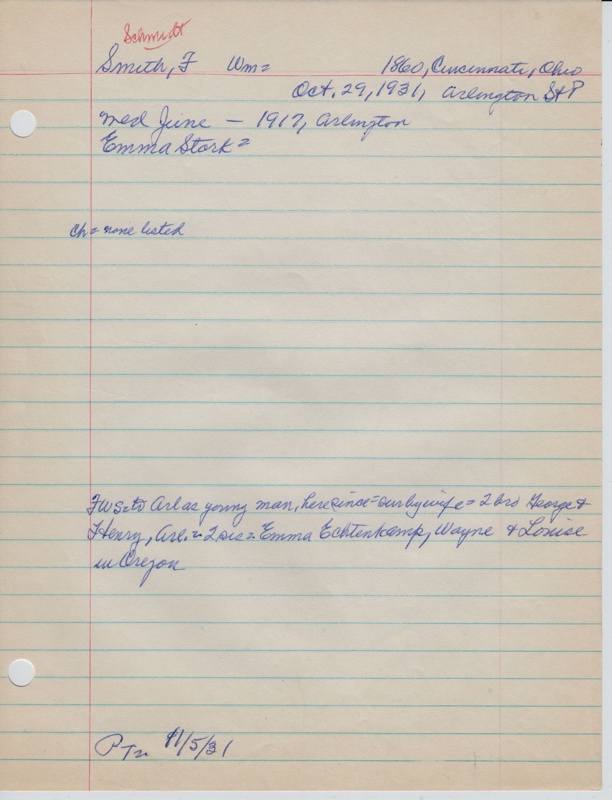 Schmidt
Smith, F Wm = 1860, Cincinnati, Ohio
Oct. 29, 1931, Arlington St P
med June - 1917, Arlington
Emma Stork =
Ch = none listed
FWS = to Arl as young man, here since = sur by wife = 2 bro George &
Henry, Arl. = 2 sis = Emma Echtenkamp, Wayne & Louise
in Oregon
PTn 11/5/31